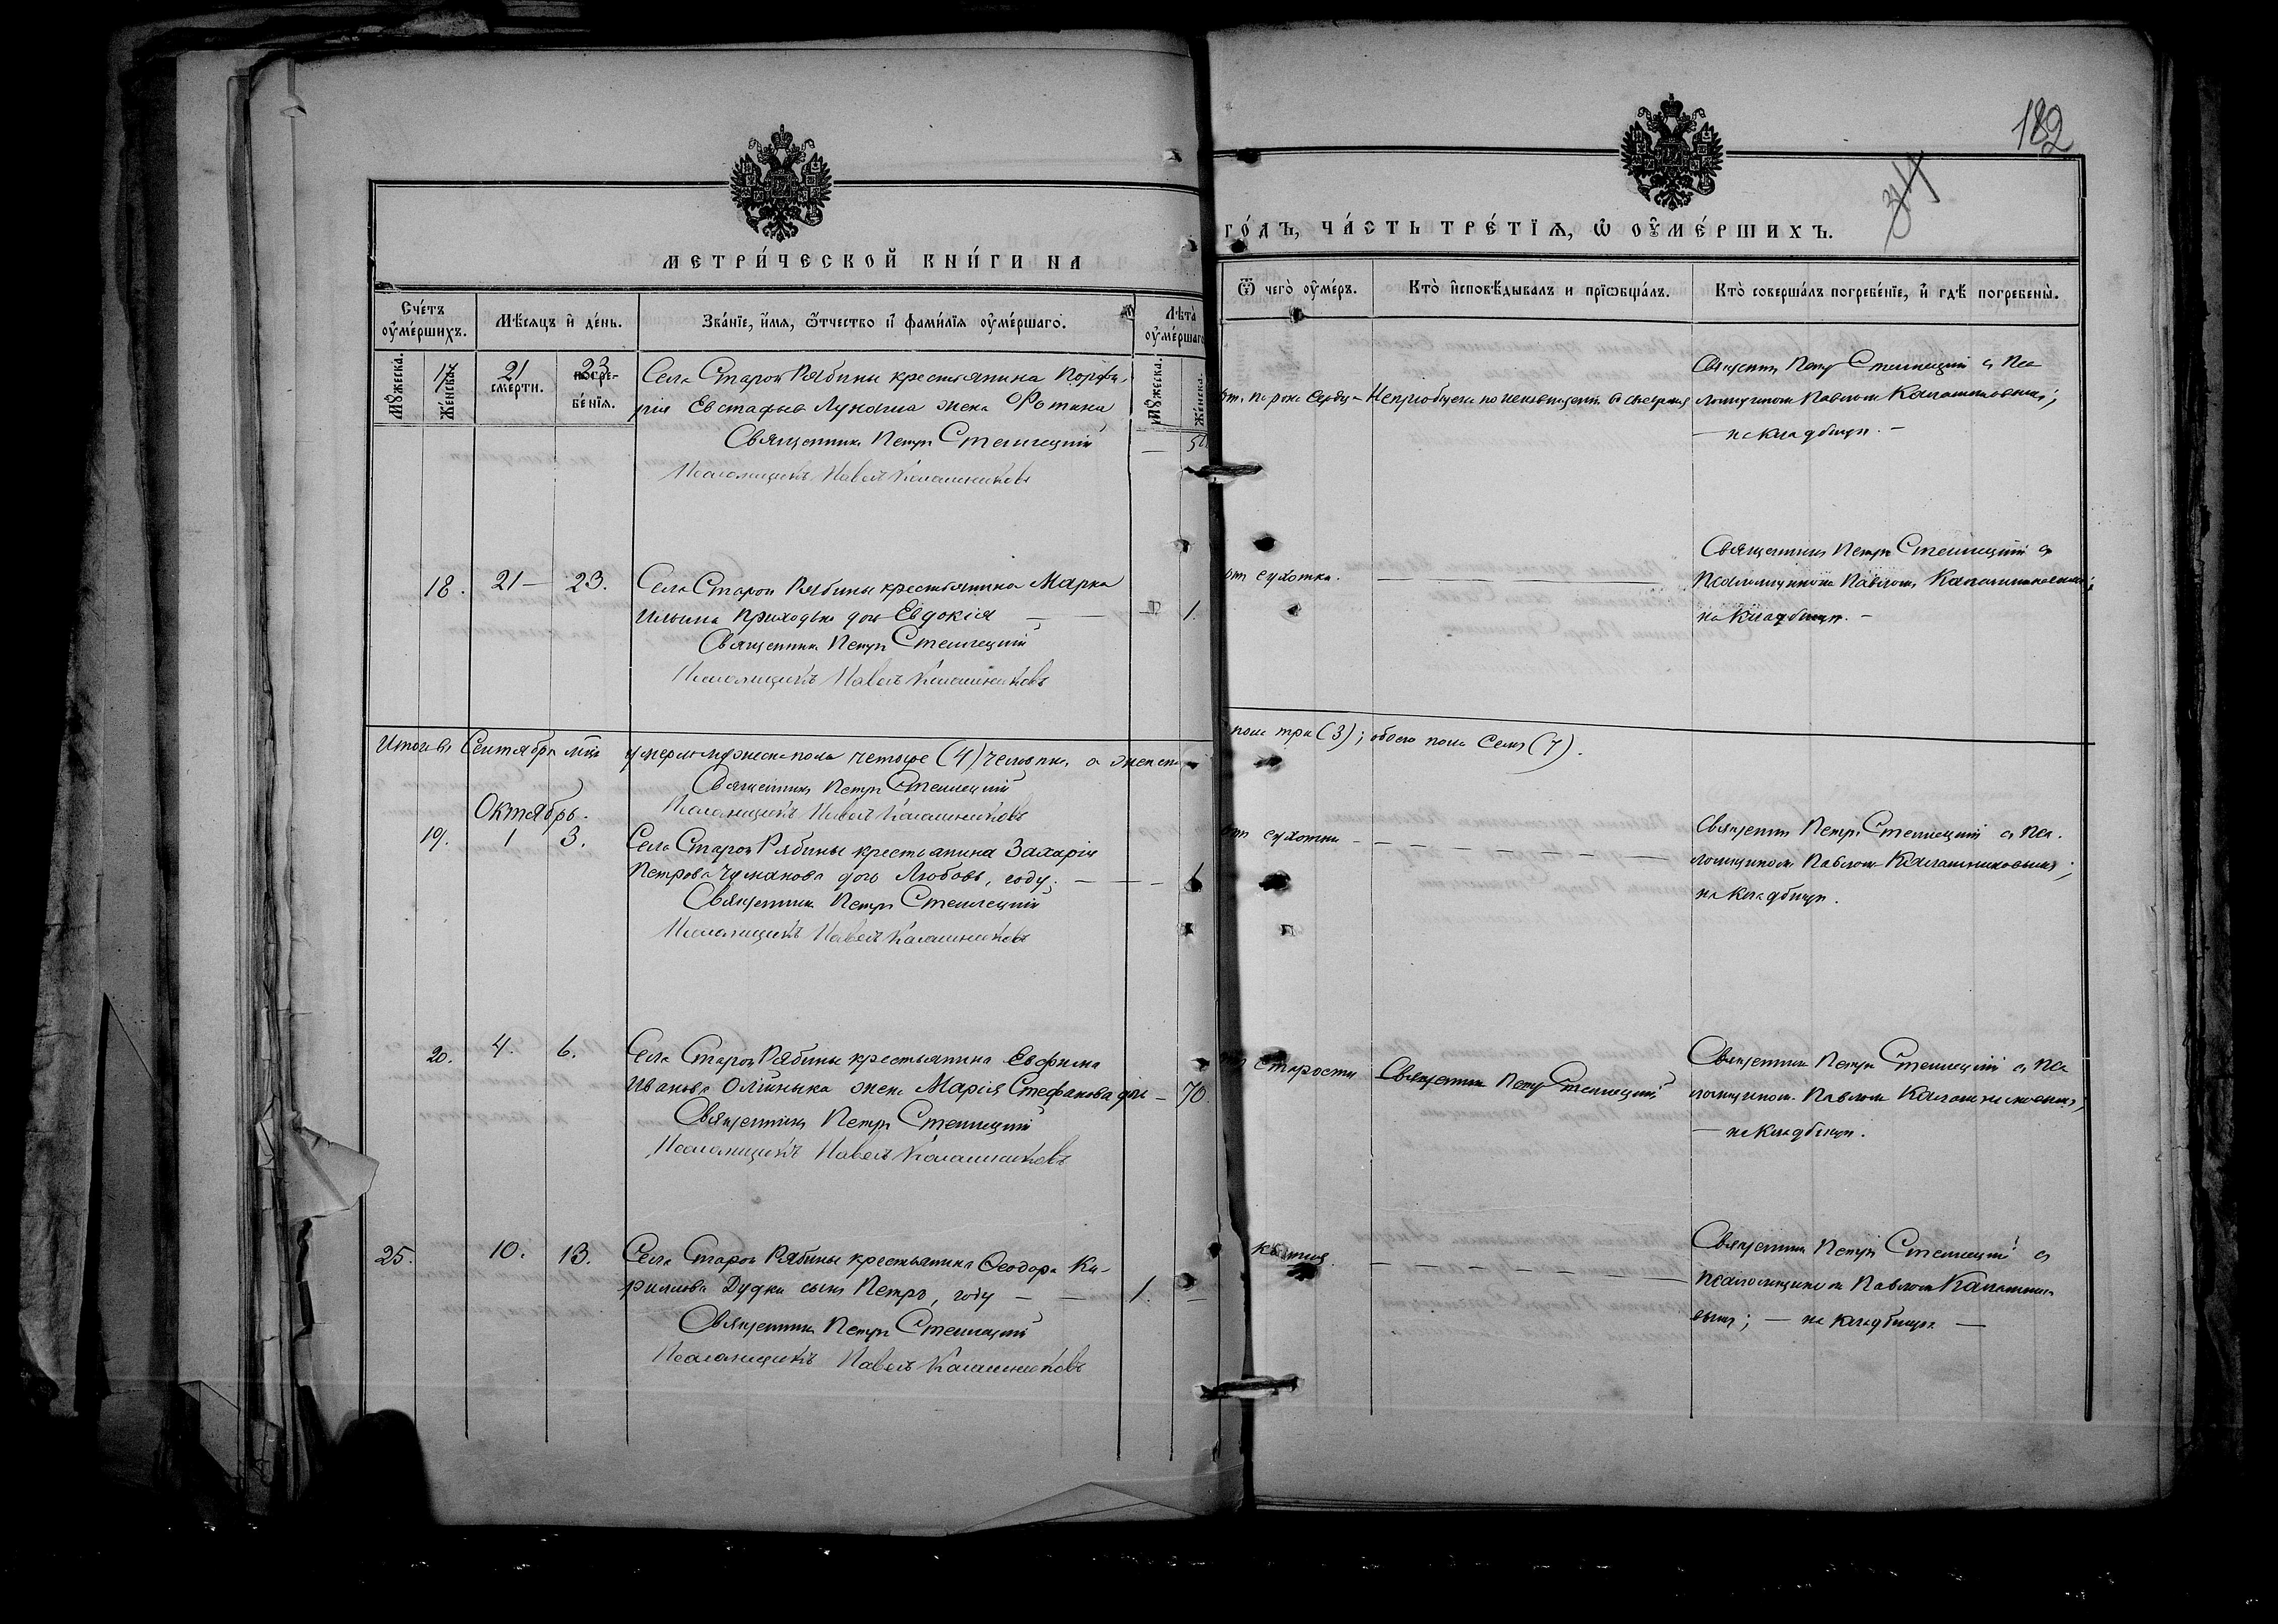 182
34
МЕТРИ́ЧЕСКОЙ КНИ́ГИ НА
ГО́ДЪ, ЧА́СТЬ ТРЕ́ТІѦ, Ѡ ОУ҆МЕ́РШИХЪ.
Сче́тъ оу҆ме́ршихъ.
Мѣ́сяцъ и҆ де́нь.
Зва́нїе, и҆́мѧ, ѻ҆́тчество и҆ фами́лїѧ оу҆ме́ршагѡ.
Лѣта̀ оу҆ме́ршаг
Ѿ чегѡ̀ оу҆ме́ръ.
Кто̀ и҆сповѣ́дывалъ и прїѡбща́лъ.
Кто̀ соверша́лъ погребе́нїе, и҆ гдѣ̀ погребены̀.
Мꙋ́жеска.
Же́нска.
сме́рти.
погре-
бе́нїѧ.
Мꙋ́жеска.
Же́нска.
17 21 23 Села Старой Рябины крестьянина Порфи-
рия Евстафьева Лукаша жена Фотина
Священникъ Петръ Стеллецкій
Псаломщикъ Павелъ Калашниковъ
— 5
от порока сердца — Неприобщена по
Священник Петр Стеллецкий с Пса
ломщиком Павлом Калашниковымъ;
— на кладбище. —
18. 21 — 23. Села Старой Рябины крестьянина Марка
Ильина Приходько дочь Евдокія —
Священникъ Петръ Стеллецкій
Псаломщикъ Павелъ Калашниковъ
— 1.
от сухотки. —
Священникъ Петръ Стеллецкий с
Псаломщикомъ Павломъ Калашниковымъ;
на кладбище. —
Итого въ Сентябрѣ мцѣ умерло мужеска пола четыре (4) человѣка, а женска
пола три (3); обоего пола семь (7).
Священникъ Петръ Стеллецкій
Псаломщикъ Павелъ Калашниковъ
Октябрь.
19. 1 3. Села Старой Рябины крестьянина Захарія
Петрова Чуманова дочь Любовь, году. — — 1
Священникъ Петръ Стеллецкій
Псаломщикъ Павелъ Калашниковъ
от сухотки —
Священник Петръ Стеллецкий с Пса-
ломщиком Павлом Калашниковымъ;
на кладбище.
20. 4. 6. Села Старой Рябины крестьянина Евфима
Иванова Олійныка жена Марія Стефанова дочь — 70.
Священникъ Петръ Стеллецкій
Псаломщикъ Павелъ Калашниковъ
от старости
Священник Петр Стеллецкий
Священник Петръ Стеллецкий с Пса
ломщиком Павлом Калашниковымъ;
— на кладбище.
25. 10. 13. Села Старой Рябины крестьянина Ѳеодора Ки-
риллова Дудки сынъ Петръ, году — — 1. —
Священникъ Петръ Стеллецкій
Псаломщикъ Павелъ Калашниковъ
Священник Петръ Стеллецкий с
Псаломщиком Павлом Калашнико
вымъ; — на кладбище —